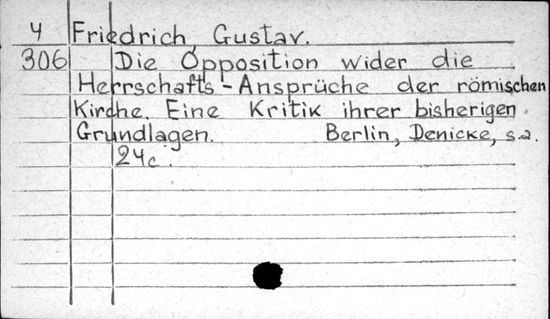 4 Friedrich, Gustav.
306 Die Opposition wider die
Herrschafts-Ansprüche der römischen
Kirche. Eine Kritik ihrer bisherigen
Grundlagen. Berlin, Denicke, s.a.
24c.